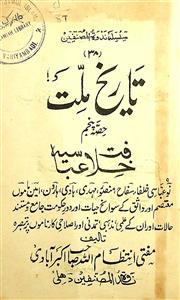 سلسلۂ ندوۃ المصنفین
(۳۸)
تاریخ ملت
حصہ پنجم
خلافت عباسیہ
نو عباسی خلفاء سفاح، منصور، مہدی، ہادی، ہارون، امین، مامون
معتصم اور واثق کے سوانح حیات اور دور حکومت کے جامع و مستند
حالات اور ان کے علمی، مذہبی، تمدنی و اصلاحی کارناموں پر تبصرہ
تالیف
مفتی انتظام اللہ صاحب اکبر آبادی
ندوۃ المصنفین دہلی